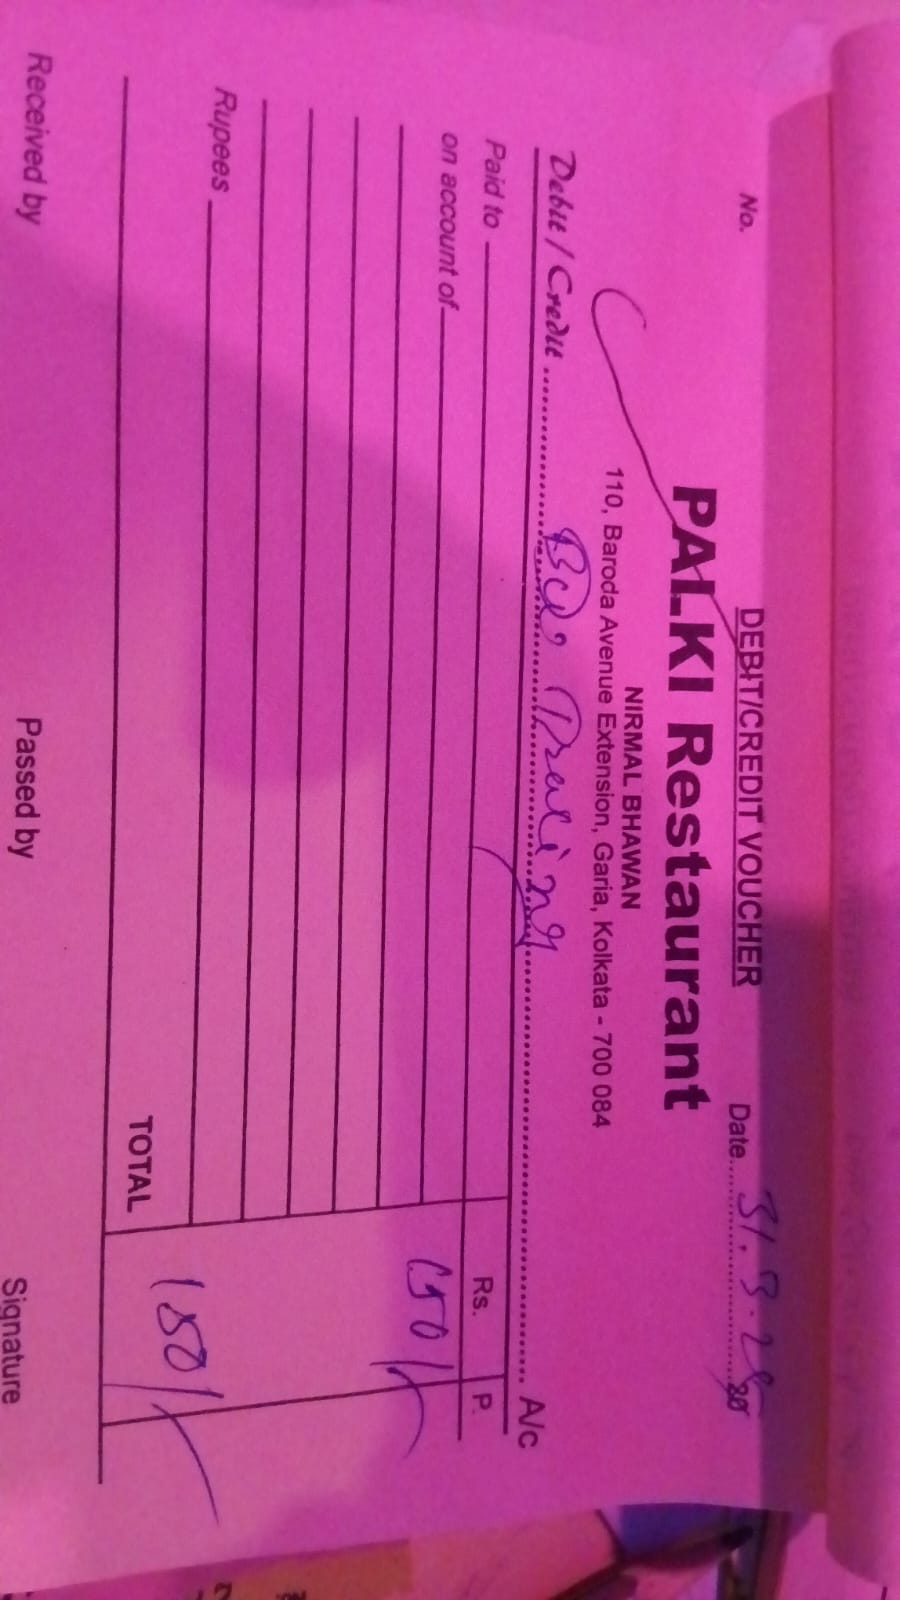 No.
DEBIT/CREDIT VOUCHER
Date 31.3.25
PALKI Restaurant
NIRMAL BHAWAN
110, Baroda Avenue Extension, Garia, Kolkata - 700 084
Debit / Credit A/c
Paid to Rs. P.
on account of 150/-
Rupees
TOTAL 150/-
Received by Passed by Signature